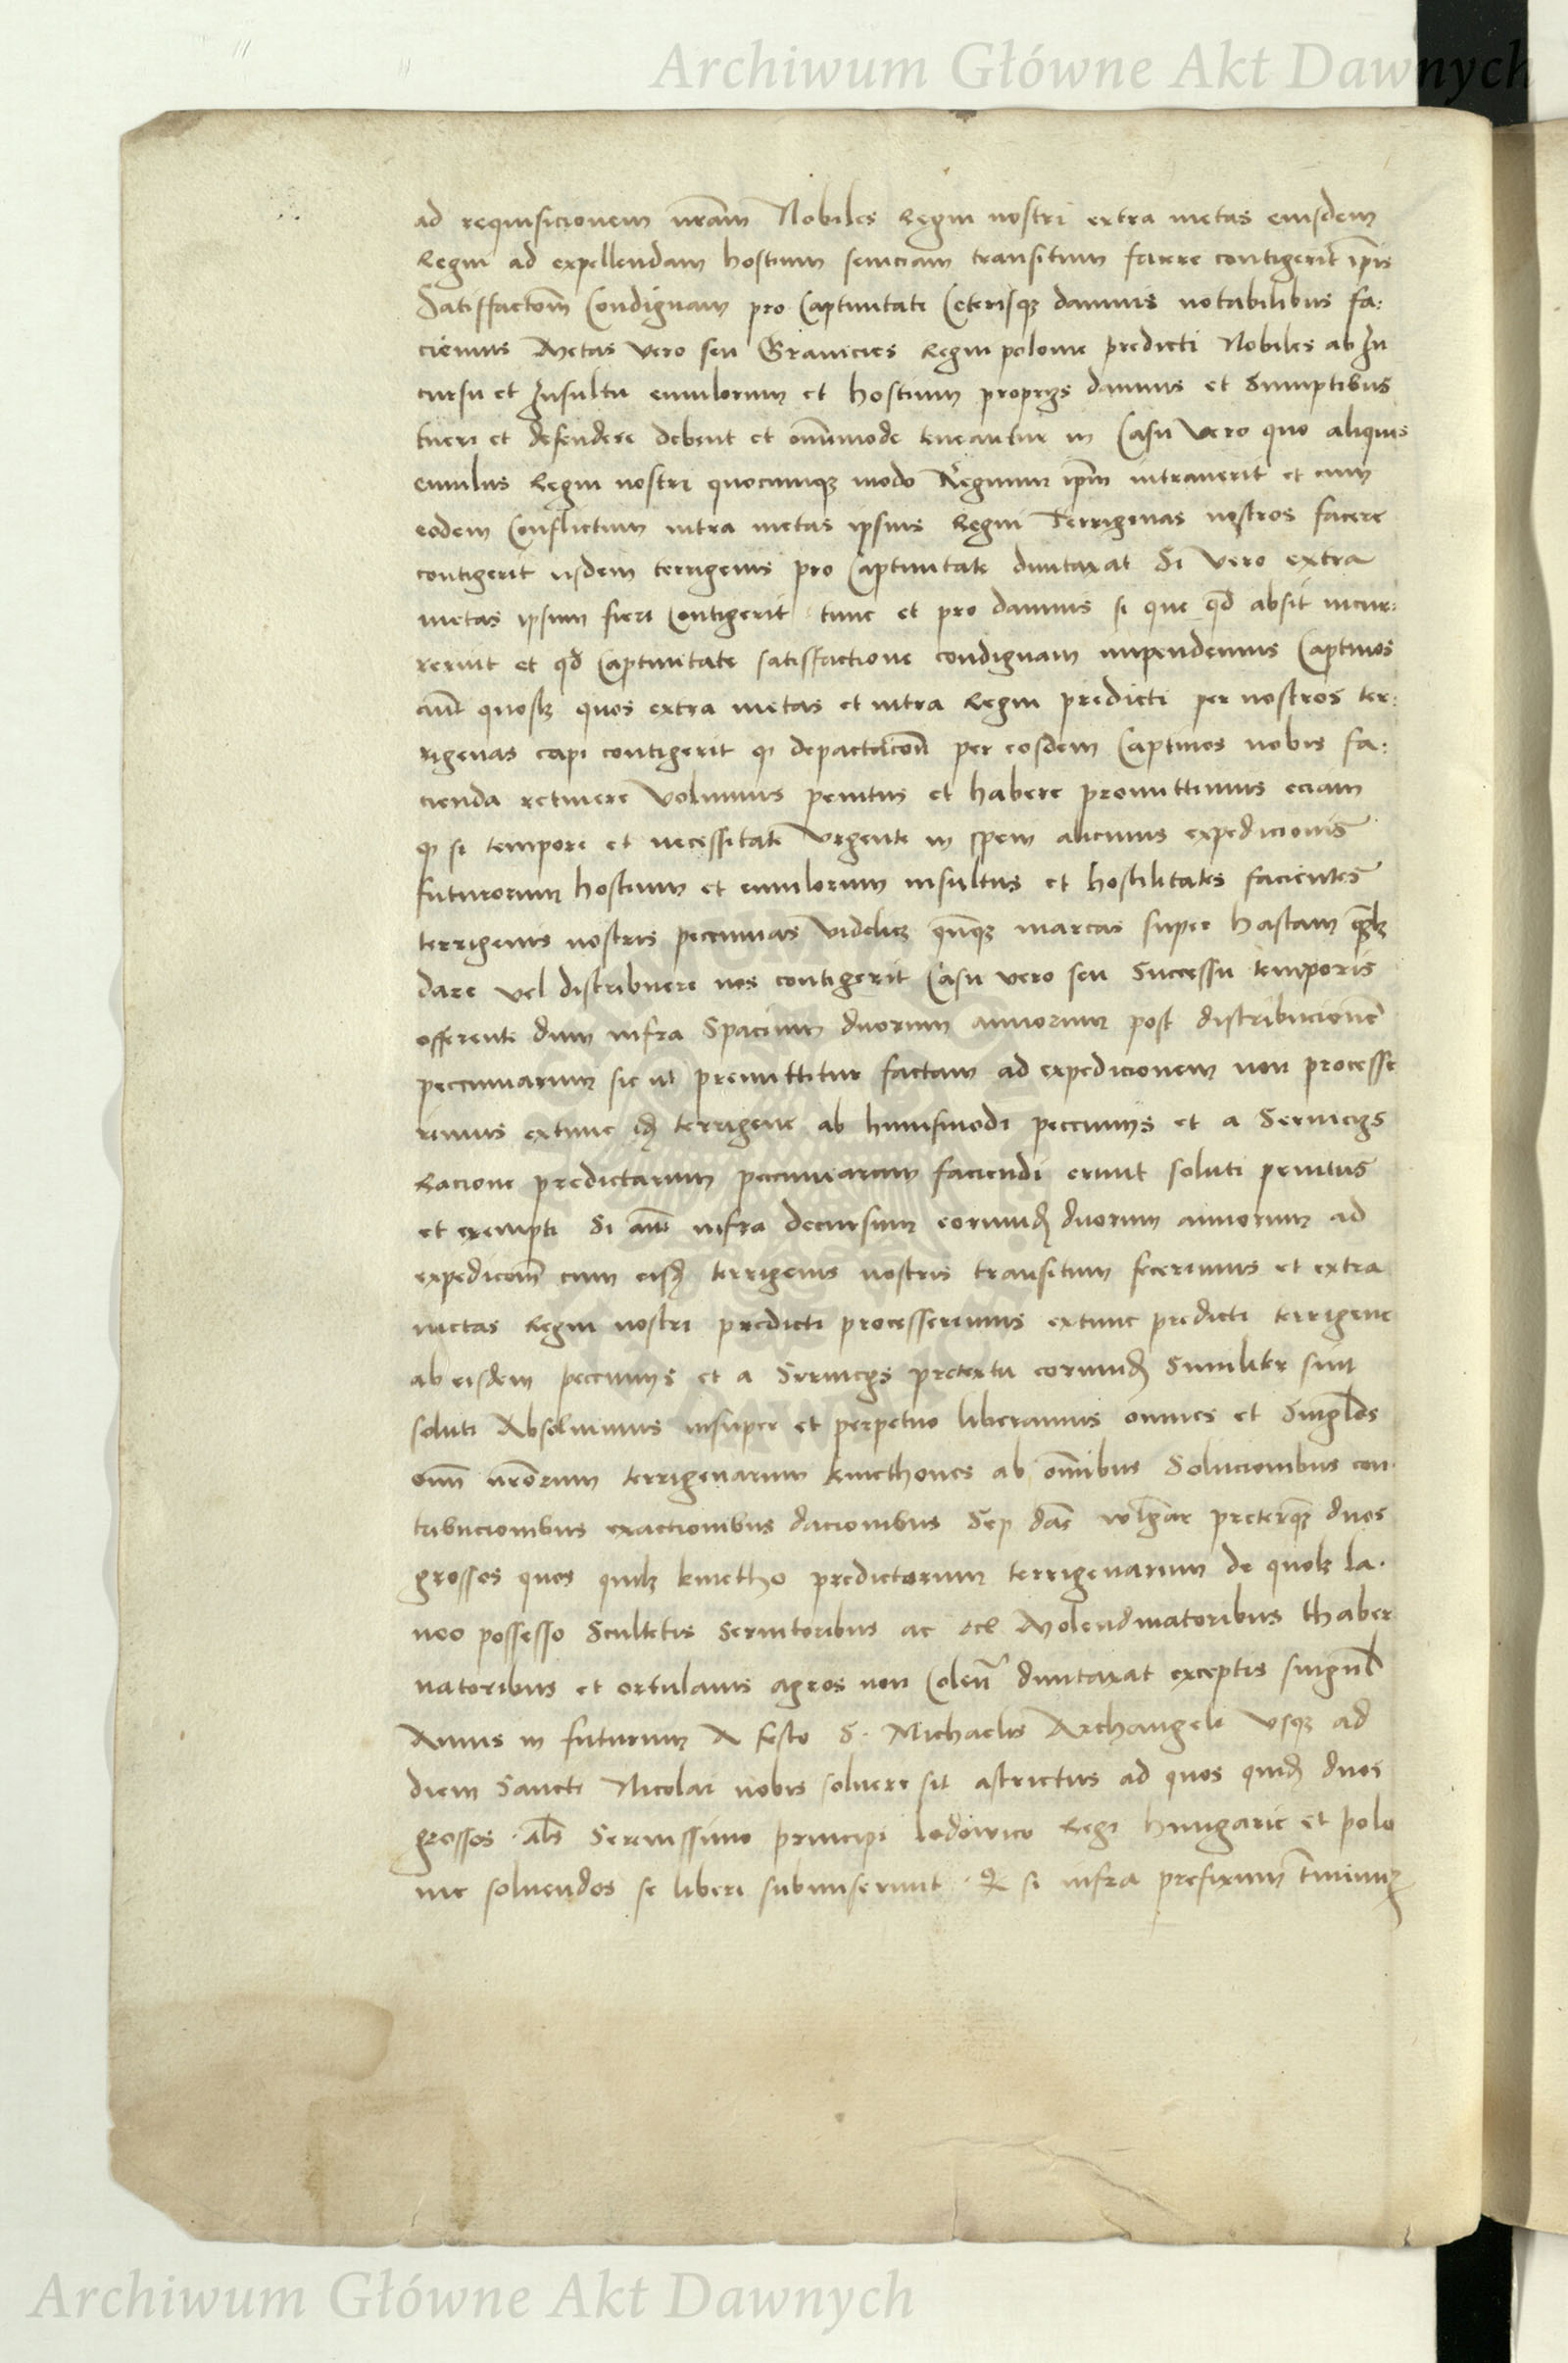 Archiwum Główne Akt Dawnych
ad requisicionem nr̃am Nobiles Regni nostri extra metas eiusdem
Regni ad expellendam hostium seuiciam transitum facere contigerit ip̃is
Satisffactom̃ Condignam pro Captiuitate Ceterisqȝ damnis notabilibus fa:
ciemus Metas vero seu Granicies Regni polonie predicti Nobiles ab In
cursu et Insultu emulorum et hostium proprys damnis et Sumptibus
tueri et defendere debent et om̃imode teneantur in Casu vero quo aliquis
emulus Regni nostri quocumqȝ modo Regnum ip̃m intrauerit et cum
eodem Conflictum intra metas ipsius Regni Terrigenas nostros facere
contigerit iisdem terrigenis pro Captiuitate duntaxat Si vero extra
metas ipsum fieri Contigerit tunc et pro damnis si que qd̃ absit incur:
rerint et qd̃ Captiuitate satisffactione condignam impendemus Captiuos
aut̃ quoslȝ quos extra metas et intra Regni predicti per nostros ter:
rigenas capi contigerit ꝙ depactacõn per eosdem Captiuos nobis fa:
cienda retinere volumus penitus et habere promittimus eciam
ꝙ si tempore et necessitate vrgente in spem alicuius expedicionis
futurorum hostium et emulorum insultus et hostilitates facientes
terrigenis nostris peccunias videlicȝ qñqȝ marcas super hastam qm̃lȝ
dare vel distribuere nos contigerit Casu vero seu Successu temporis
offerente dum infra Spacium duorum annorum post distribucionẽ
peccuniarum sic ut premittitur factam ad expedicionem non processe
rimus extunc idȝ terrigene ab huiusmodi peccunys et a Seruicys
Racione predictarum peccuniarum faciendi erunt soluti penitus
et exempti Si aut̃ infra decursum eorundȝ duorum annorum ad
expedicom̃ cum eisdȝ terrigenis nostris transitum fecerimus et extra
metas Regni nostri predicti processerimus extunc predicti terrigene
ab eisdem peccunys et a Seruicys pretextu eorundȝ Similiter sint
soluti Absoluimus insuper et perpetuo liberamus omnes et Singl̃os
om̃ nr̃orum terrigenarum kmethones ab om̃ibus Solucionibus con
tribucionibus exactionibus dacionibus Sep dãc wlgar̃ preterqȝ duos
grossos quos quilȝ kmetho predictorum terrigenarum de quolȝ la.
neo possesso Scultetis Seruitoribus ac ecl̃ Molendinatoribus thaber
natoribus et ortulanis agros non Colen̄ duntaxat exceptis singul̃
Annis in futurum A festo S. Michaelis Archangeli vsqȝ ad
diem Sancti Nicolai nobis soluere sit astrictus ad quos quidȝ duos
grossos al̃s Serenissimo principi lodowico Regi hungarie et polo
nie soluendos se liberi submiserunt. Qƺ si infra prefixum t̃minuȝ
Archiwum Główne Akt Dawnych